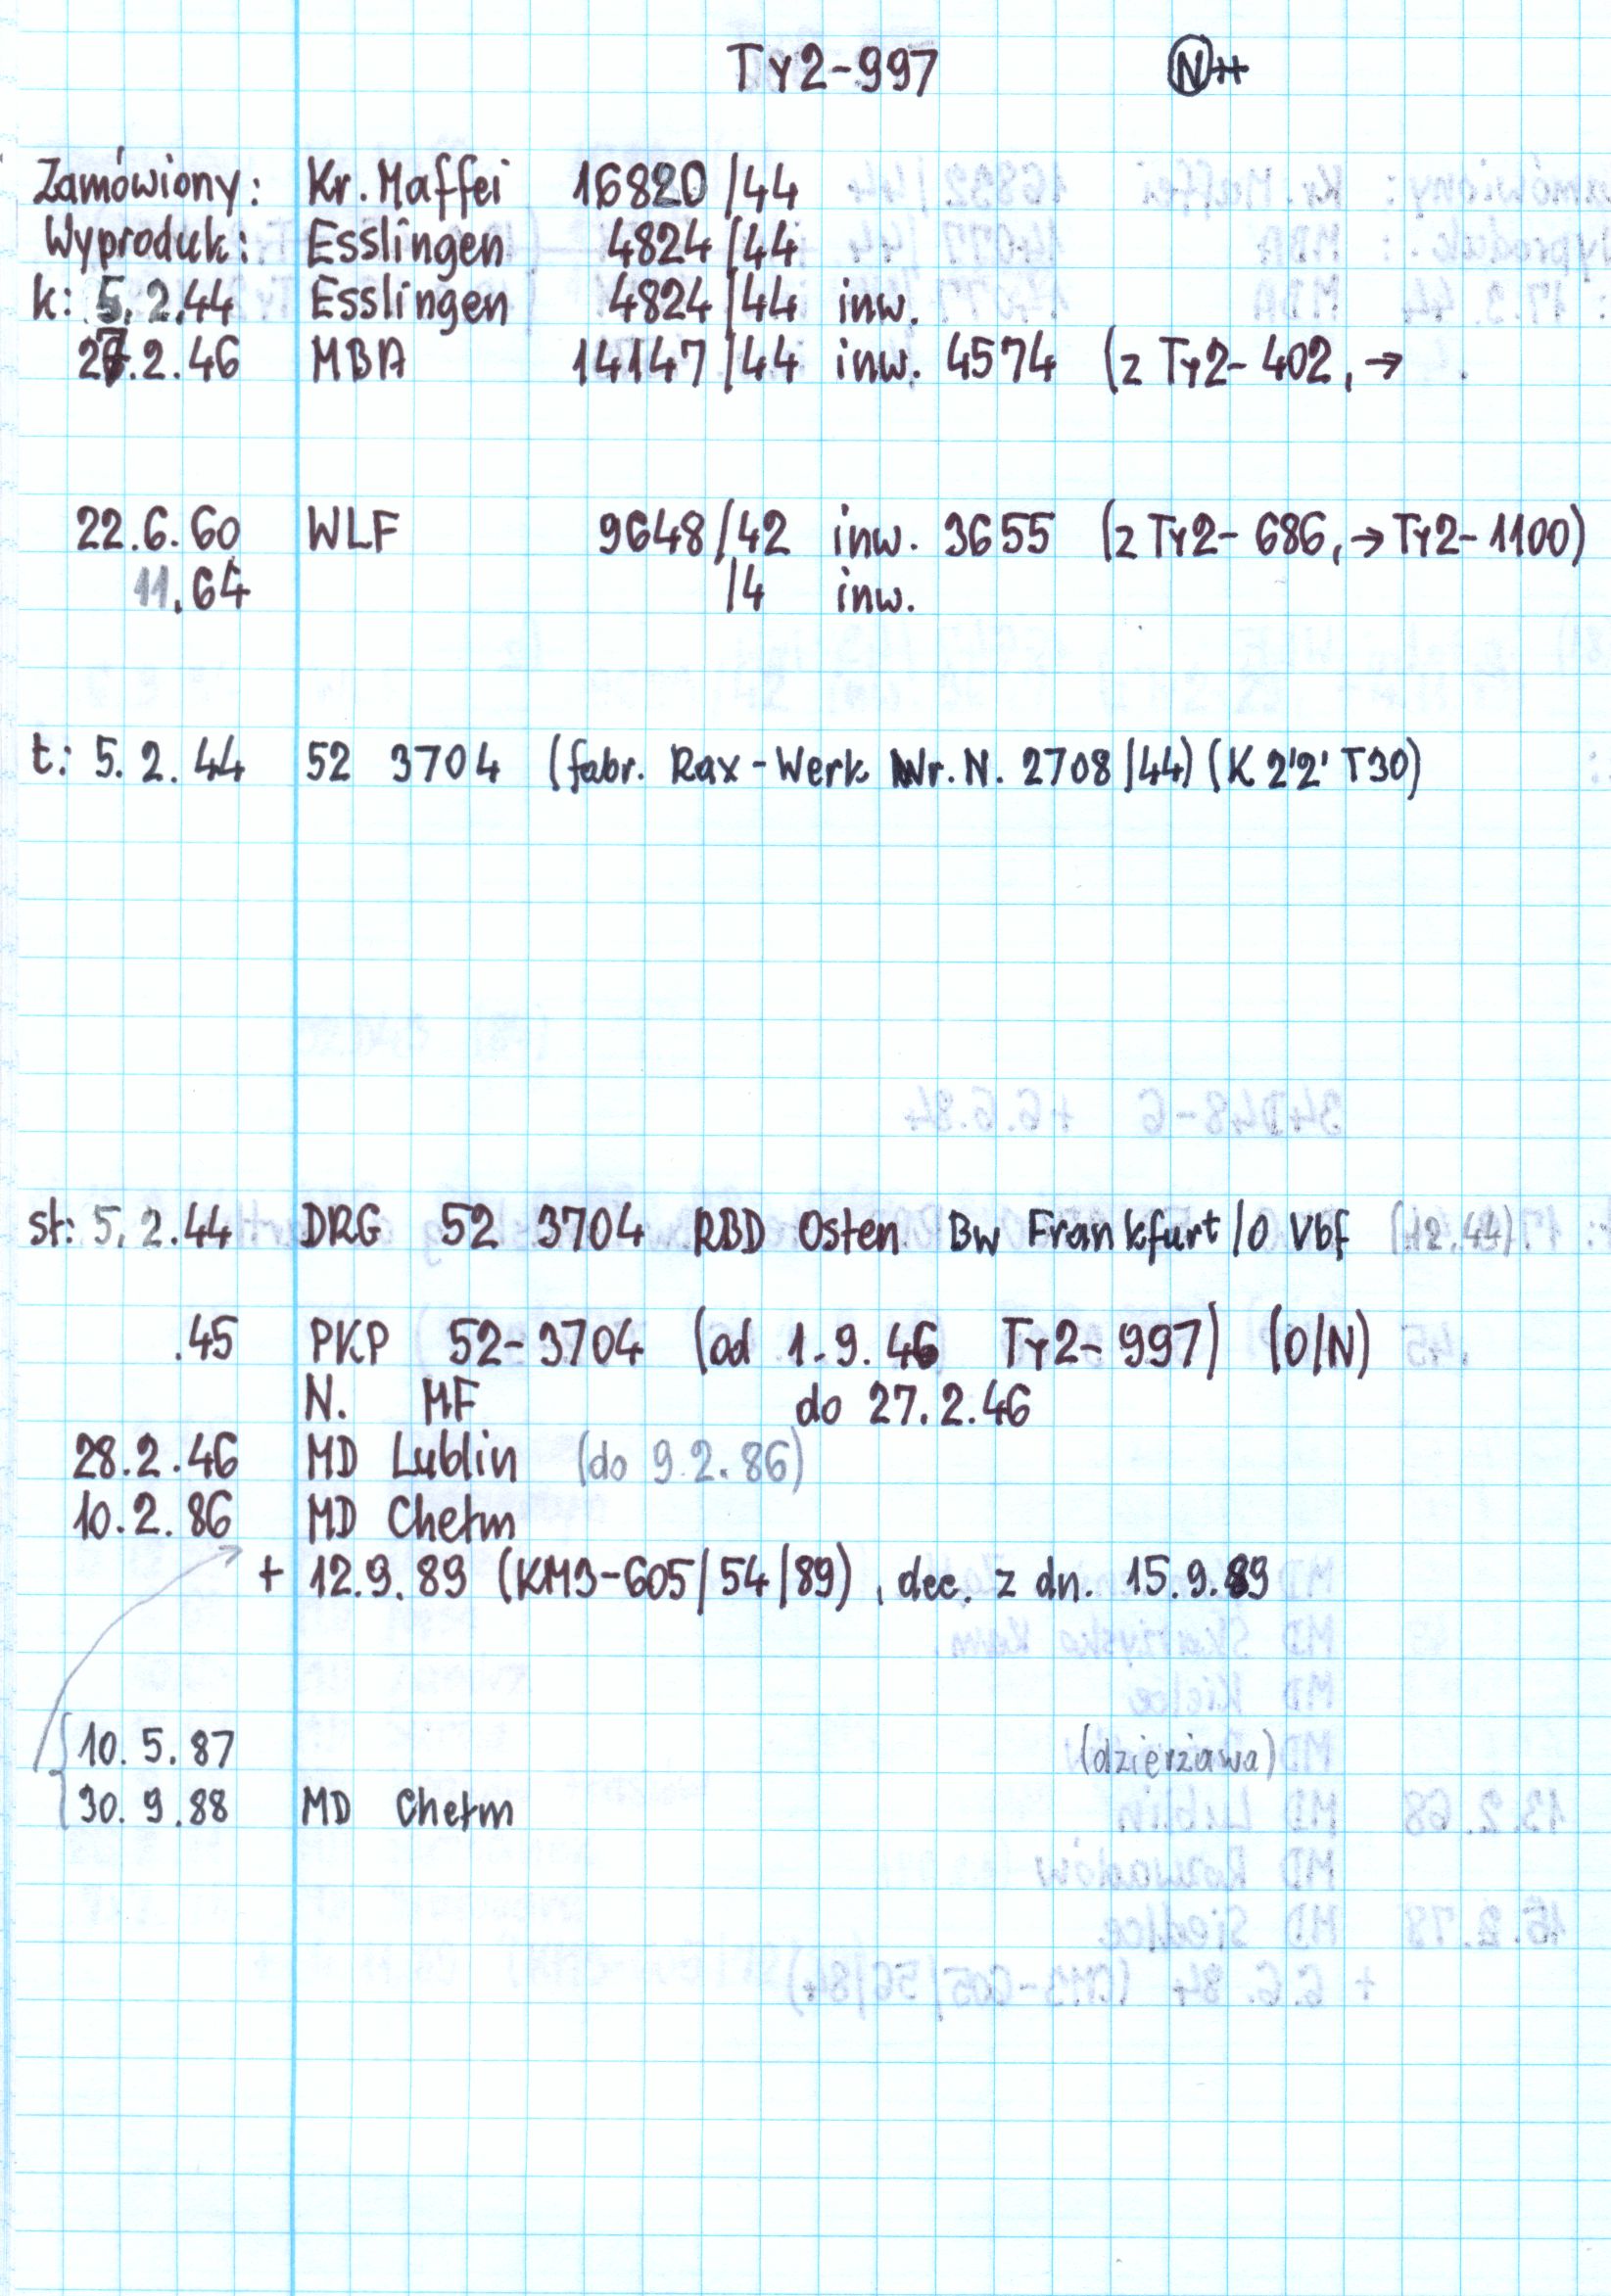 Ty2-997 N++
Zamówiony: Kr. Maffei 16820/44
Wyproduk: Esslingen 4824/44
k: 5.2.44 Esslingen 4824/44 inw.
27.2.46 MBA 14147/44 inw. 4574 (z Ty2-402, →
22.6.60 WLF 9648/42 inw. 3655 (z Ty2-686, → Ty2-1100)
11.64 /4 inw.
t: 5.2.44 52 3704 (fabr. Rax-Werk Nr. N. 2708/44) (K 2'2' T30)
st: 5.2.44 DRG 52 3704 RBD Osten Bw Frankfurt/O Vbf (12.44)
.45 PKP 52-3704 (od 1.9.46 Ty2-997) (O/N)
N. MF do 27.2.46
28.2.46 MD Lublin (do 9.2.86)
10.2.86 MD Chełm
+ 12.9.89 (KM3-605/54/89), dec. z dn. 15.9.89
10.5.87 (dzierżawa)
30.9.88 MD Chełm